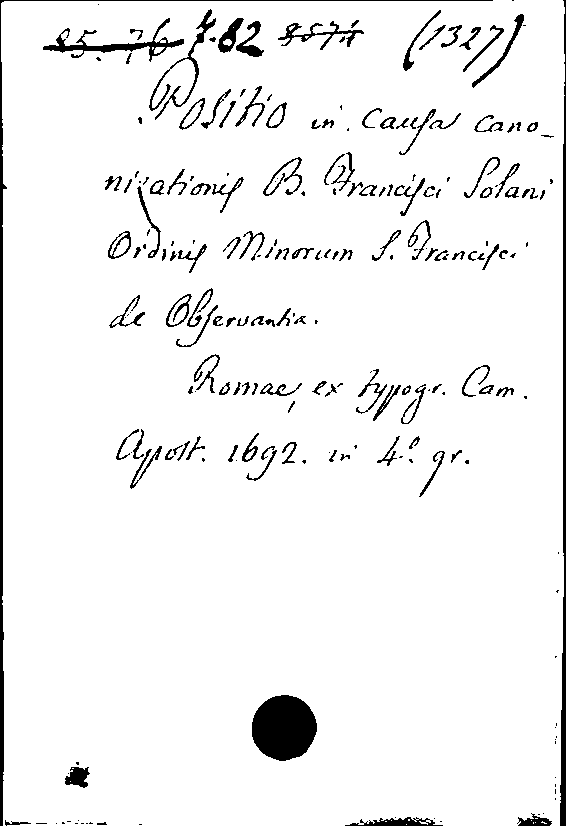 85. 76 7.82 8574 (1327)
Positio in causa cano-
nizationis B. Francisci Solani
Ordinis Minorum S. Francisci
de Observantia.
Romae, ex typogr. Cam.
Apost. 1692. in 4º. gr.